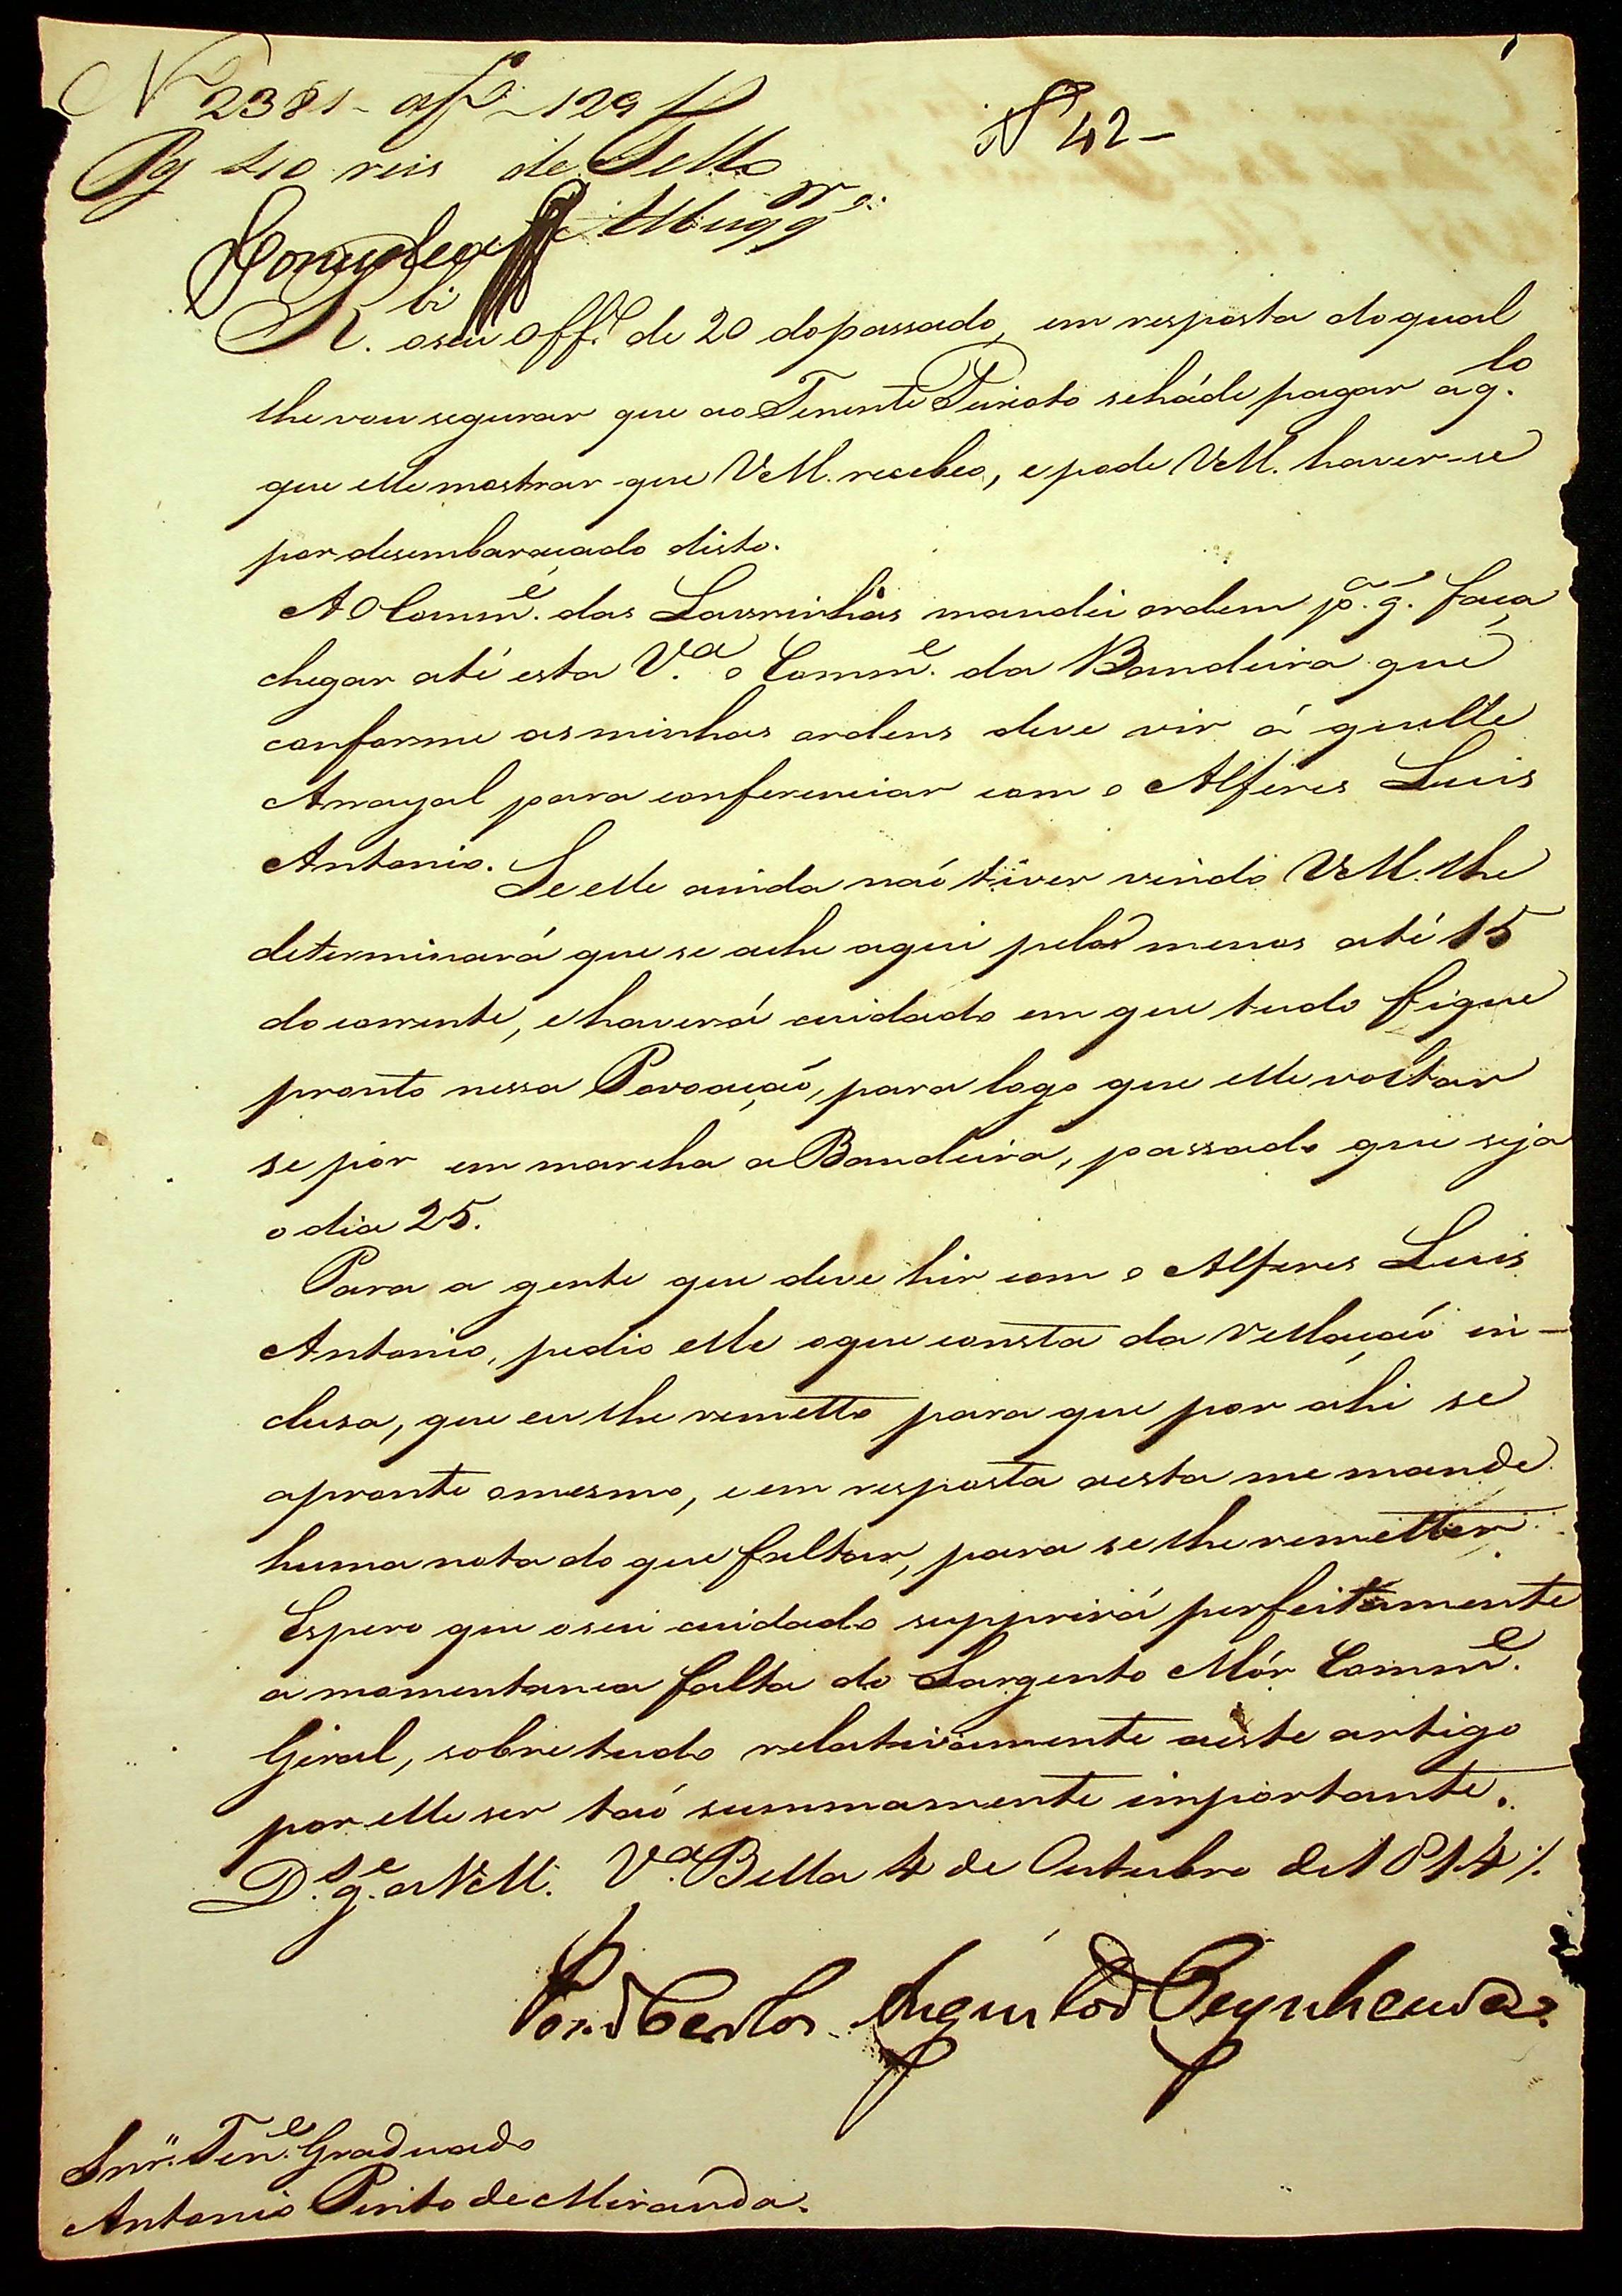 Nº 2381 - af - 129
Pg 410 reis de Sello
Nº 42 -
R.bi o seu Off.º de 20 do passado, em resposta do qual
lhe vou segurar que ao Tenente Peixoto se háde pagar áq.lo
que elle mostrar que VM. recebeo, e pode VM. haver-se
por desembaraçado disto.
Ao Comm.e das Lavrinhas mandei ordem p.a q. faça
chegar até esta V.a o Comm.e da Bandeira que
conforme as minhas ordens deve vir á quelle
Arrayal para conferenciar com o Alferes Luis
Antonio. Se elle ainda naó tiver vindo VM. lhe
determinará que se ache aqui pelos menos até 15
do corrente, e haverá cuidado em que tudo fique
pronto nessa Povoaçaó, para logo que elle voltar
se pór em marcha a Bandeira, passado que seja
o dia 25.
Para a gente que deve hir com o Alferes Luis
Antonio, pedio elle o que consta da rellaçaó in-
clusa, que eu lhe remetto para que por ahi se
apronte o mesmo, e em resposta a esta me mande
huma nota do que faltar, para se lhe remetter.
Espero que o seu cuidado supprirá perfeitamente
a momentanea falta do Sargento Mór Comm.e
Geral, sobre tudo relativamente a este artigo
por elle ser taó summamente importante.
D.s g.e a VM. V.a Bella 4 de Outubro de 1814 /.
João Carlos Augusto d'Oeynhausen
Snr. Ten.e Graduado
Antonio Pinto de Miranda.